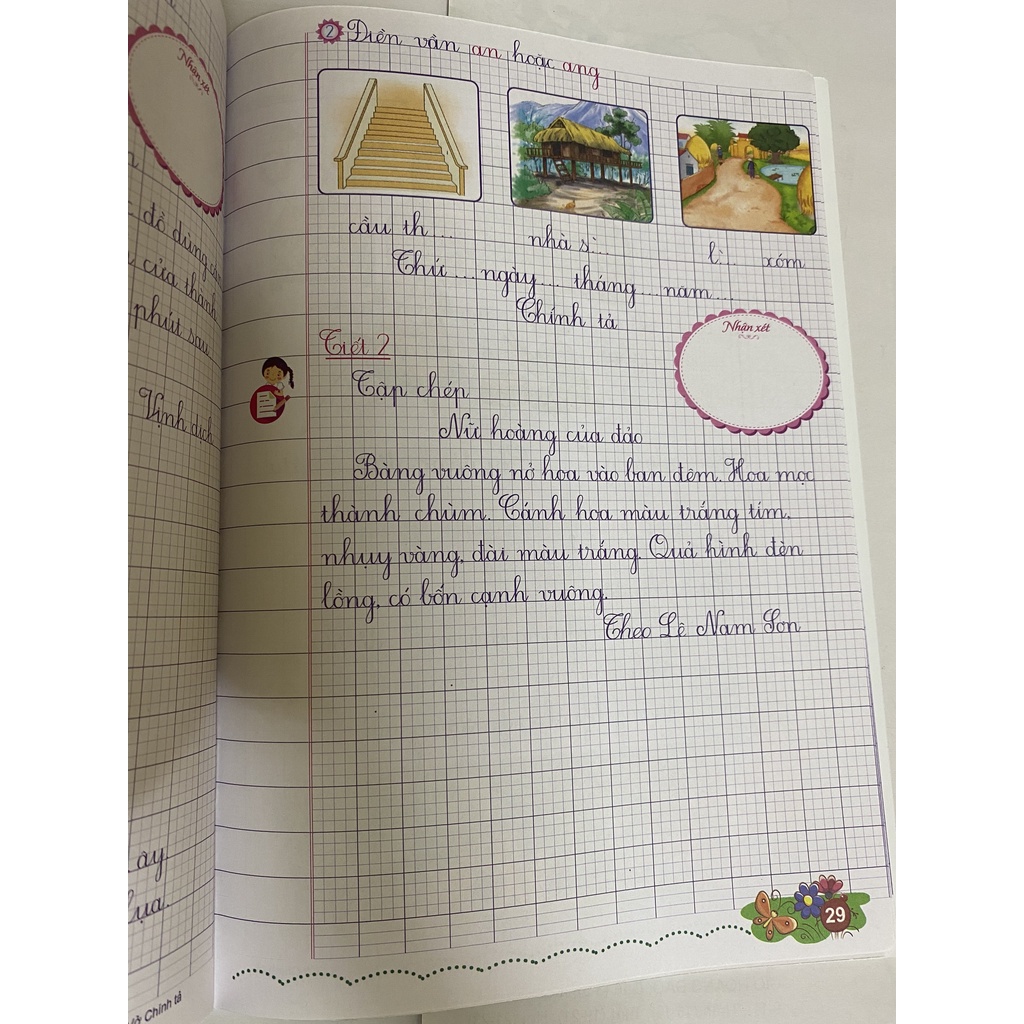 2 Điền vần an hoặc ang
cầu th...
nhà s̀...
l̀... xóm
Thứ ... ngày ... tháng ... năm ...
Chính tả
Nhận xét
Nhận xét
Tiết 2
Tập chép
Nữ hoàng của đảo
Bàng vuông nở hoa vào ban đêm. Hoa mọc
thành chùm. Cánh hoa màu trắng tím,
nhụy vàng, đài màu trắng. Quả hình đèn
lồng, có bốn cạnh vuông.
Theo Lê Nam Sơn
29
đồ dùng
của thành
phút sau
Vịnh dịch
Chính tả